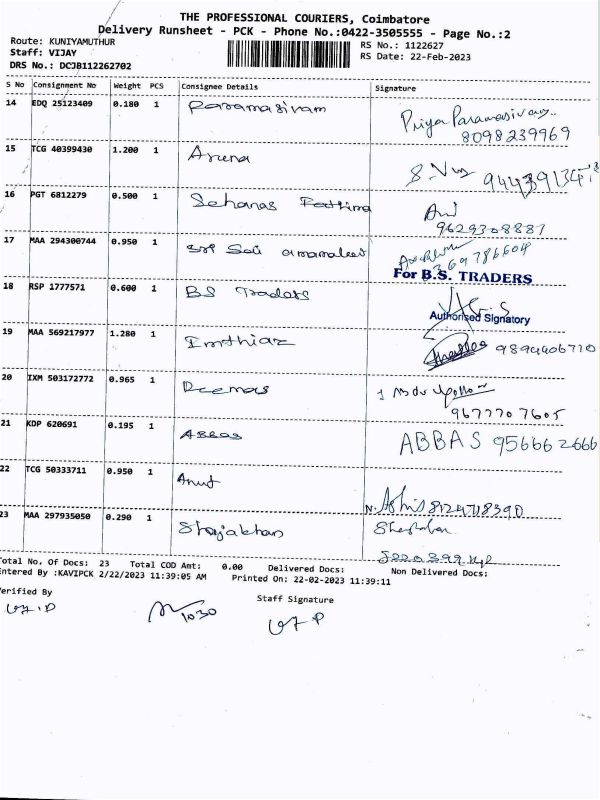 THE PROFESSIONAL COURIERS, Coimbatore
Delivery Runsheet - PCK - Phone No.:0422-3505555 - Page No.:2
Route: KUNIYAMUTHUR
Staff: VIJAY
DRS No.: DCJB112262702
RS No.: 1122627
RS Date: 22-Feb-2023
S No Consignment No Weight PCS Consignee Details Signature
14 EDQ 25123409 0.180 1 Paramasivam Priya Paramasivam
8098239969
15 TCG 40399430 1.200 1 Aruna
16 PGT 6812279 0.500 1 Sehanas Fathima
17 MAA 294300744 0.950 1 Sri Sai
For B.S. TRADERS
18 RSP 1777571 0.600 1 BS Traders
Authorised Signatory
19 MAA 569217977 1.280 1 Imthiaz 9894406710
20 IXM 503172772 0.965 1
9677707605
21 KDP 620691 0.195 1 Abbas ABBAS 956662666
22 TCG 50333711 0.950 1
8124718390
23 MAA 297935050 0.290 1 Shajakhan
Total No. Of Docs: 23 Total COD Amt: 0.00 Delivered Docs: Non Delivered Docs:
Entered By :KAVIPCK 2/22/2023 11:39:05 AM Printed On: 22-02-2023 11:39:11
Verified By
Staff Signature
1030